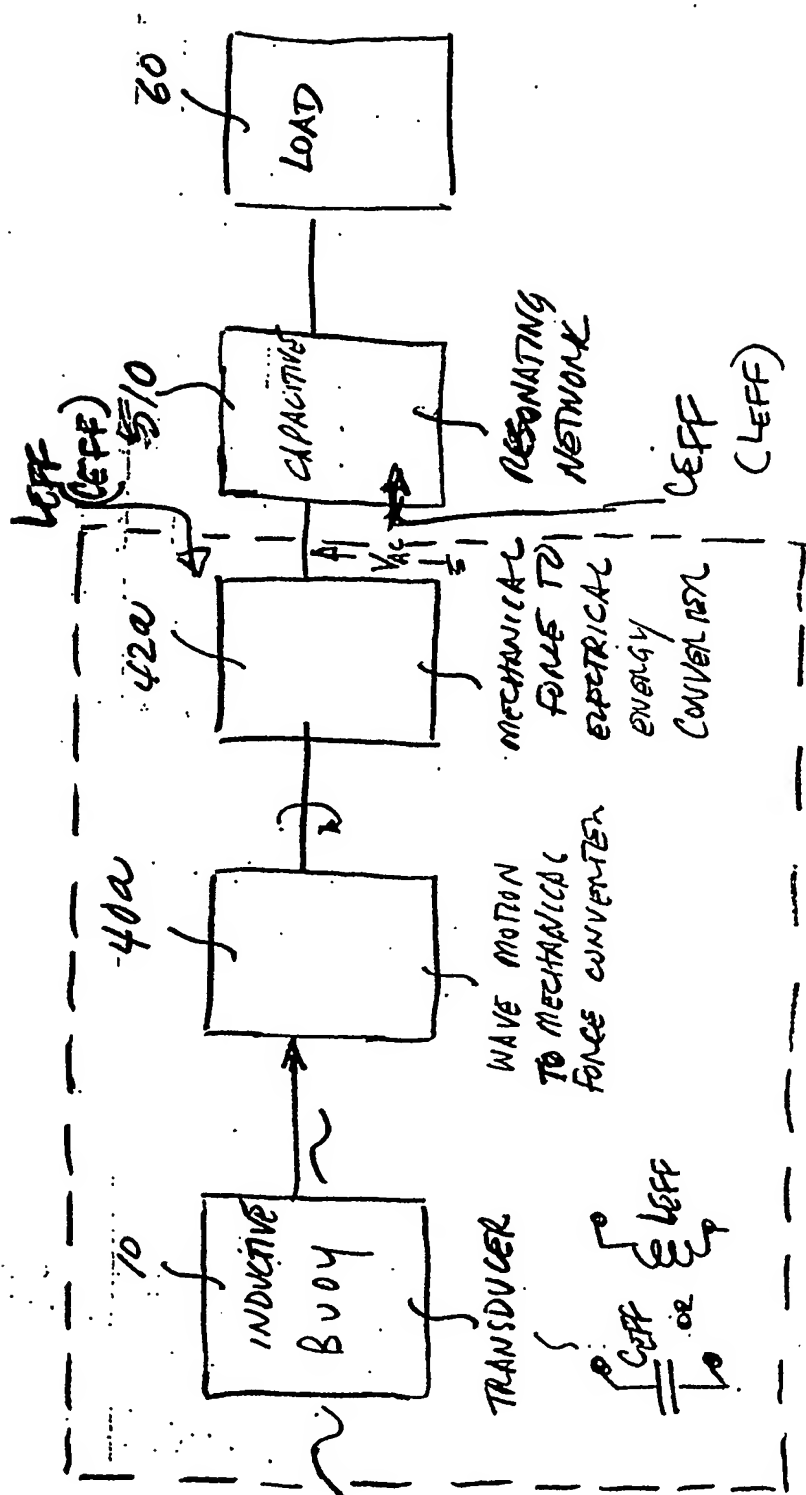 10
INDUCTIVE
BUOY
TRANSDUCER
CEFF
OR
LEFF
40a
WAVE MOTION
TO MECHANICAL
FORCE CONVERTER
42a
MECHANICAL
FORCE TO
ELECTRICAL
ENERGY
CONVERTER
LEFF
(CEFF)
VAC
510
CAPACITIVE
RESONATING
NETWORK
CEFF
(LEFF)
60
LOAD